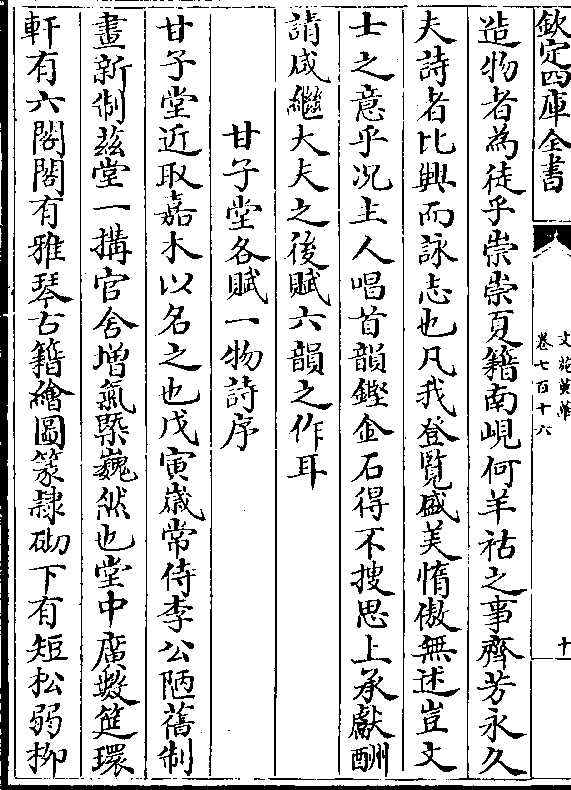 欽定四庫全書
文苑英華
卷七百十六
十
造物者為徒乎崇崇夏籍南峴何羊祜之事齊芳永久
夫詩者比興而詠志也凡我登覽盛美惰傲無述豈文
士之意乎况主人唱首韻鏗金石得不搜思上承獻酬
請咸繼大夫之後賦六韻之作耳
甘子堂各賦一物詩序
甘子堂近取嘉木以名之也戊寅歲常侍李公陋舊制
畫新制茲堂一搆官舍增氣㮣巍然也堂中廣數筵環
軒有六閣閣有雅琴古籍繪圖篆隷砌下有短松弱栁